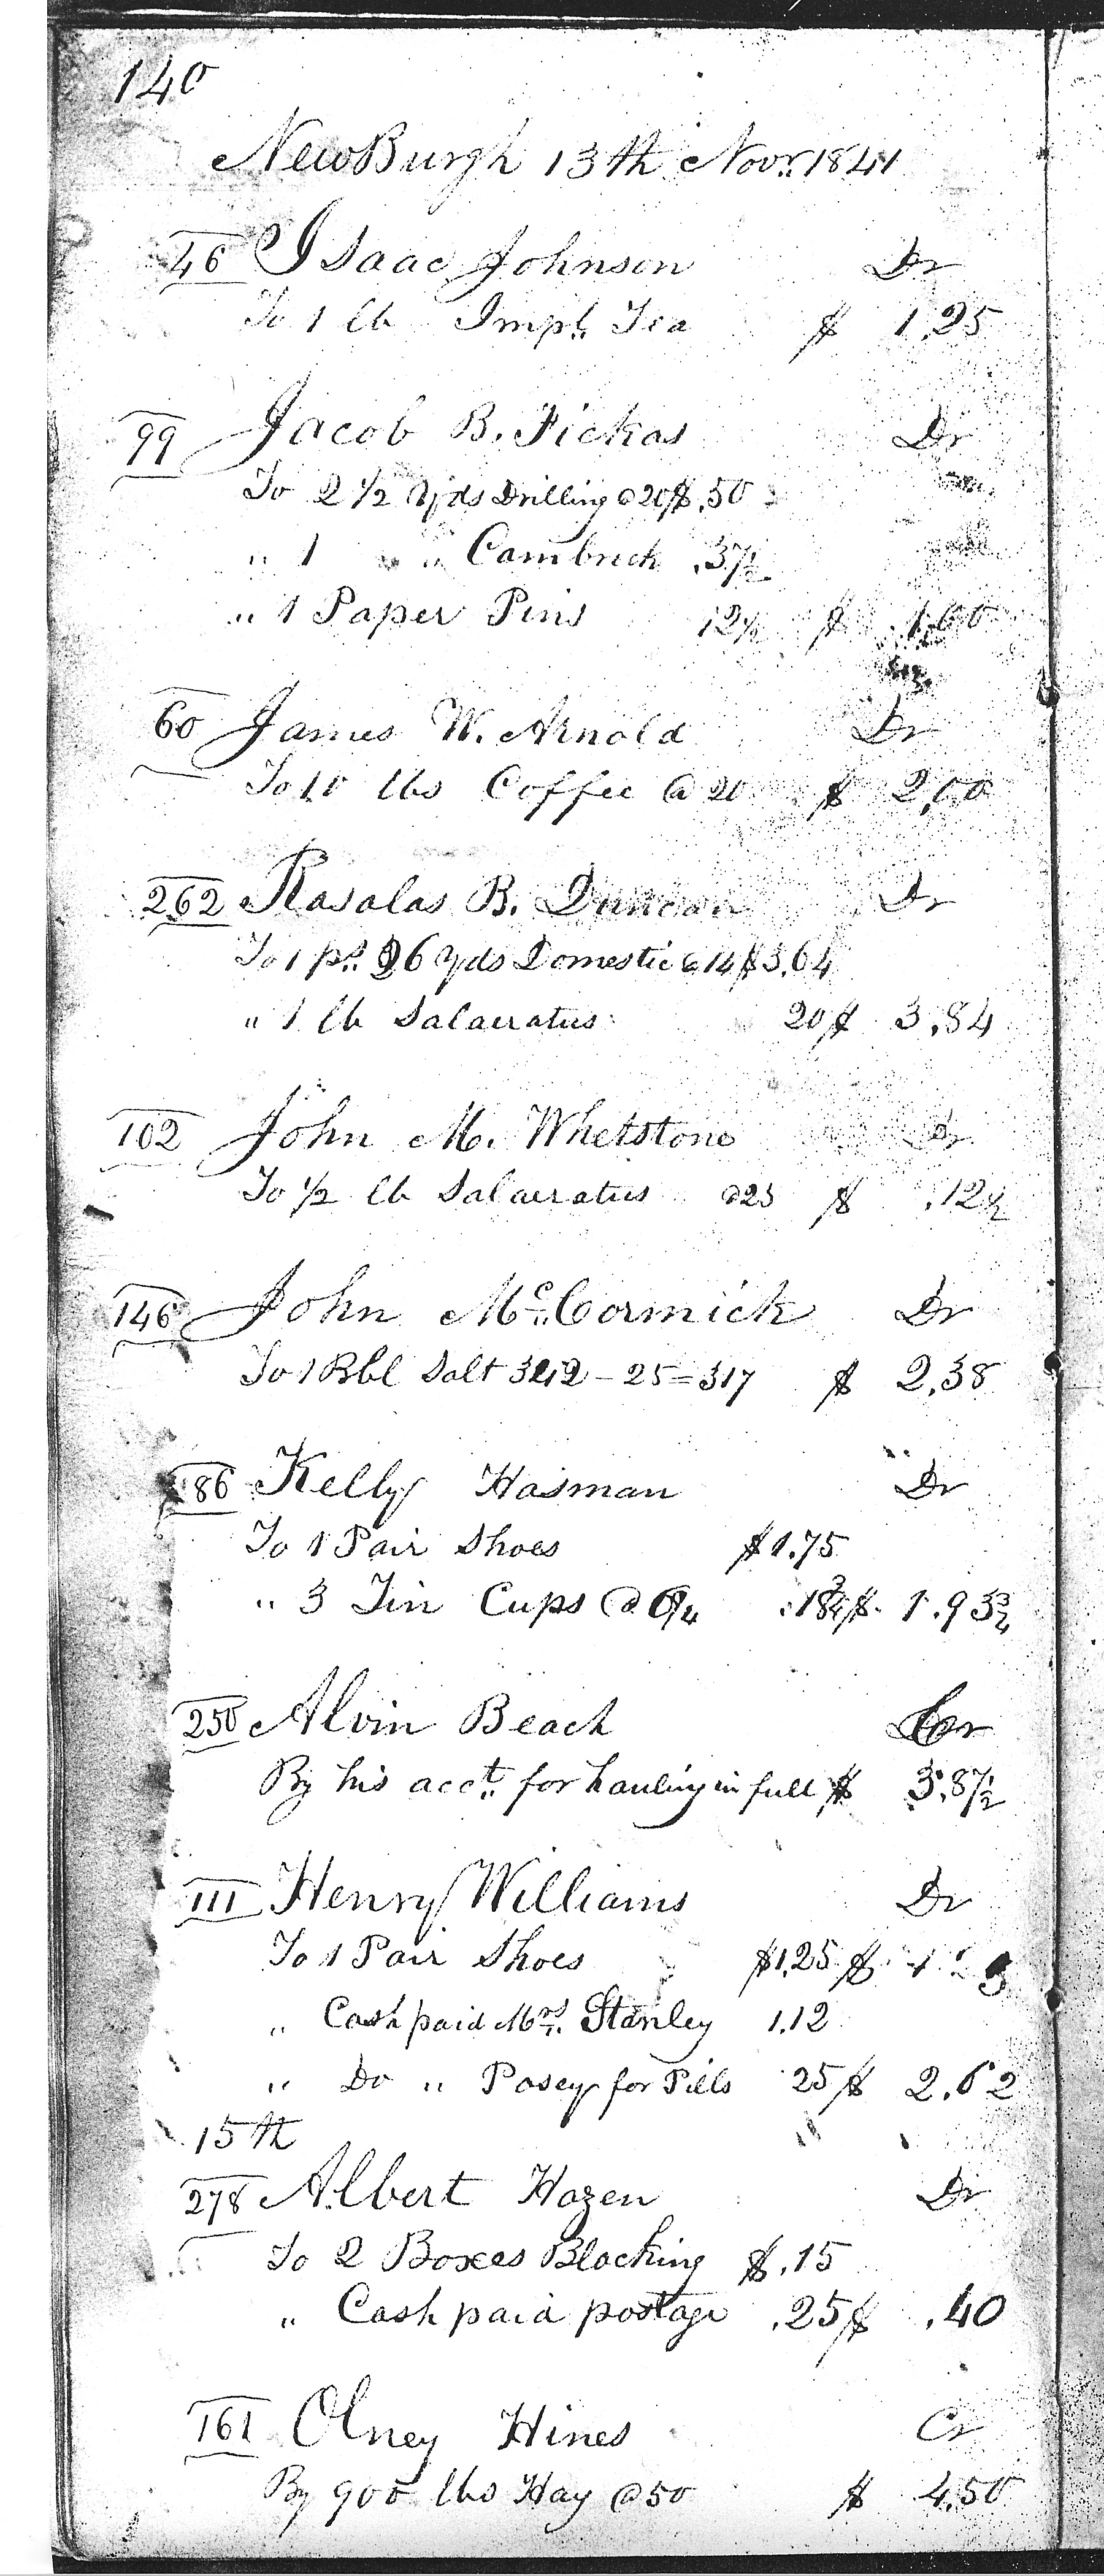 140
NewBurgh 13th Novr. 1841
46 Isaac Johnson Dr
To 1 lb Impl. Tea $ 1.25
99 Jacob B. Fickas Dr
To 2 1/2 Yds Drilling @ 20 $.50
" 1 " " Cambrick .37 1/2
" 1 Paper Pins 12 1/2 $ 1,00
60 James W. Arnold Dr
To 10 lbs Coffee @ 20 $ 2,00
262 Rasalas B. Duncan Dr
To 1 ps. 26 Yds Domestic @ 14 $3.64
" 1 lb Salaeratus 20 $ 3.84
102 John M. Whetstone Dr
To 1/2 lb Salaeratus @25 $ .12 1/2
146 John Mc.Cormick Dr
To 1 Bbl Salt 342 - 25 = 317 $ 2.38
86 Kelly Hasman Dr
To 1 Pair Shoes $1.75
" 3 Tin Cups @ 6 1/4 .18 3/4 $ 1.93 3/4
250 Alvin Beach Cr
By his acct. for hauling in full $ 3.87 1/2
111 Henry Williams Dr
To 1 Pair Shoes $1.25 $
" Cash paid Mrs. Stanley 1.12
" Do " Posey for Pills 25 $ 2.62
15th
278 Albert Hazen Dr
To 2 Boxes Blacking $.15
" Cash paid postage .25 $ .40
161 Olney Hines Cr
By 900 lbs Hay @ 50 $ 4.50